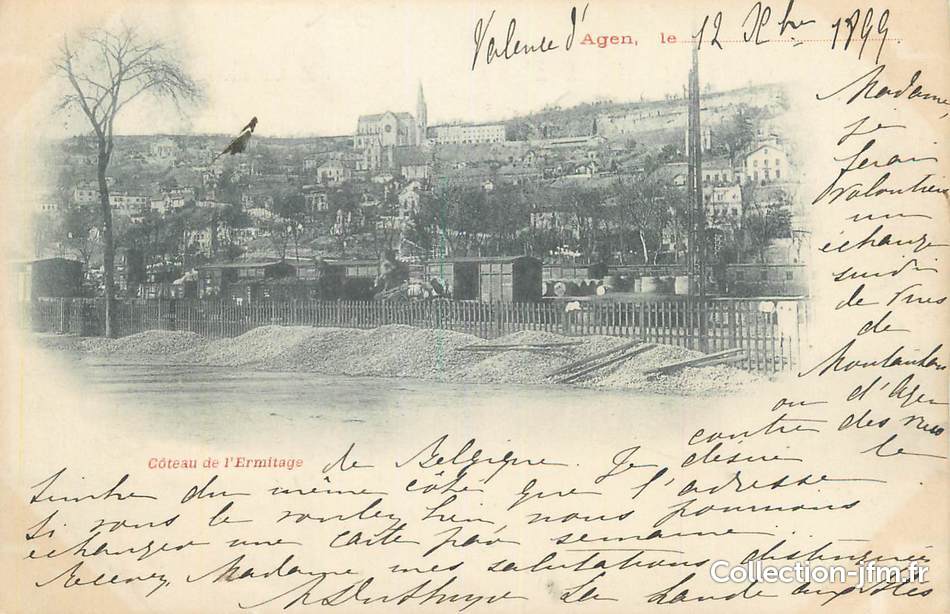 Valence d'Agen, le 12 Xbre 1899.
Madame,
Je
ferai
volontiers
un
échange
suivi
de vues
de
Montauban
ou d'Agen
contre des vues
de Belgique. Je désire le
timbre du même côté que l'adresse
Si vous le voulez bien, nous pourrions
échanger une carte par semaine.
Recevez, Madame mes salutations distinguées
Côteau de l'Ermitage
Collection-jfm.fr